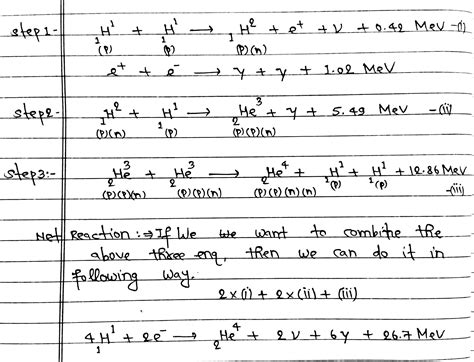 step1- ₁H¹ + ₁H¹ → ₁H² + e⁺ + ν + 0.42 MeV -(i)
(p) (p) (p)(n)
e⁺ + e⁻ → γ + γ + 1.02 MeV
step2- ₁H² + ₁H¹ → ₂He³ + γ + 5.49 MeV -(ii)
(p)(n) (p) (p)(p)(n)
step3:- ₂He³ + ₂He³ → ₂He⁴ + ₁H¹ + ₁H¹ + 12.86 MeV
(p)(p)(n) (p)(p)(n) (p)(p)(n)(n) (p) (p) -(iii)
Net Reaction :⇒ If We want to combine the
above three eqⁿ, then we can do it in
following way.
2×(i) + 2×(ii) + (iii)
4₁H¹ + 2e⁻ → ₂He⁴ + 2ν + 6γ + 26.7 MeV